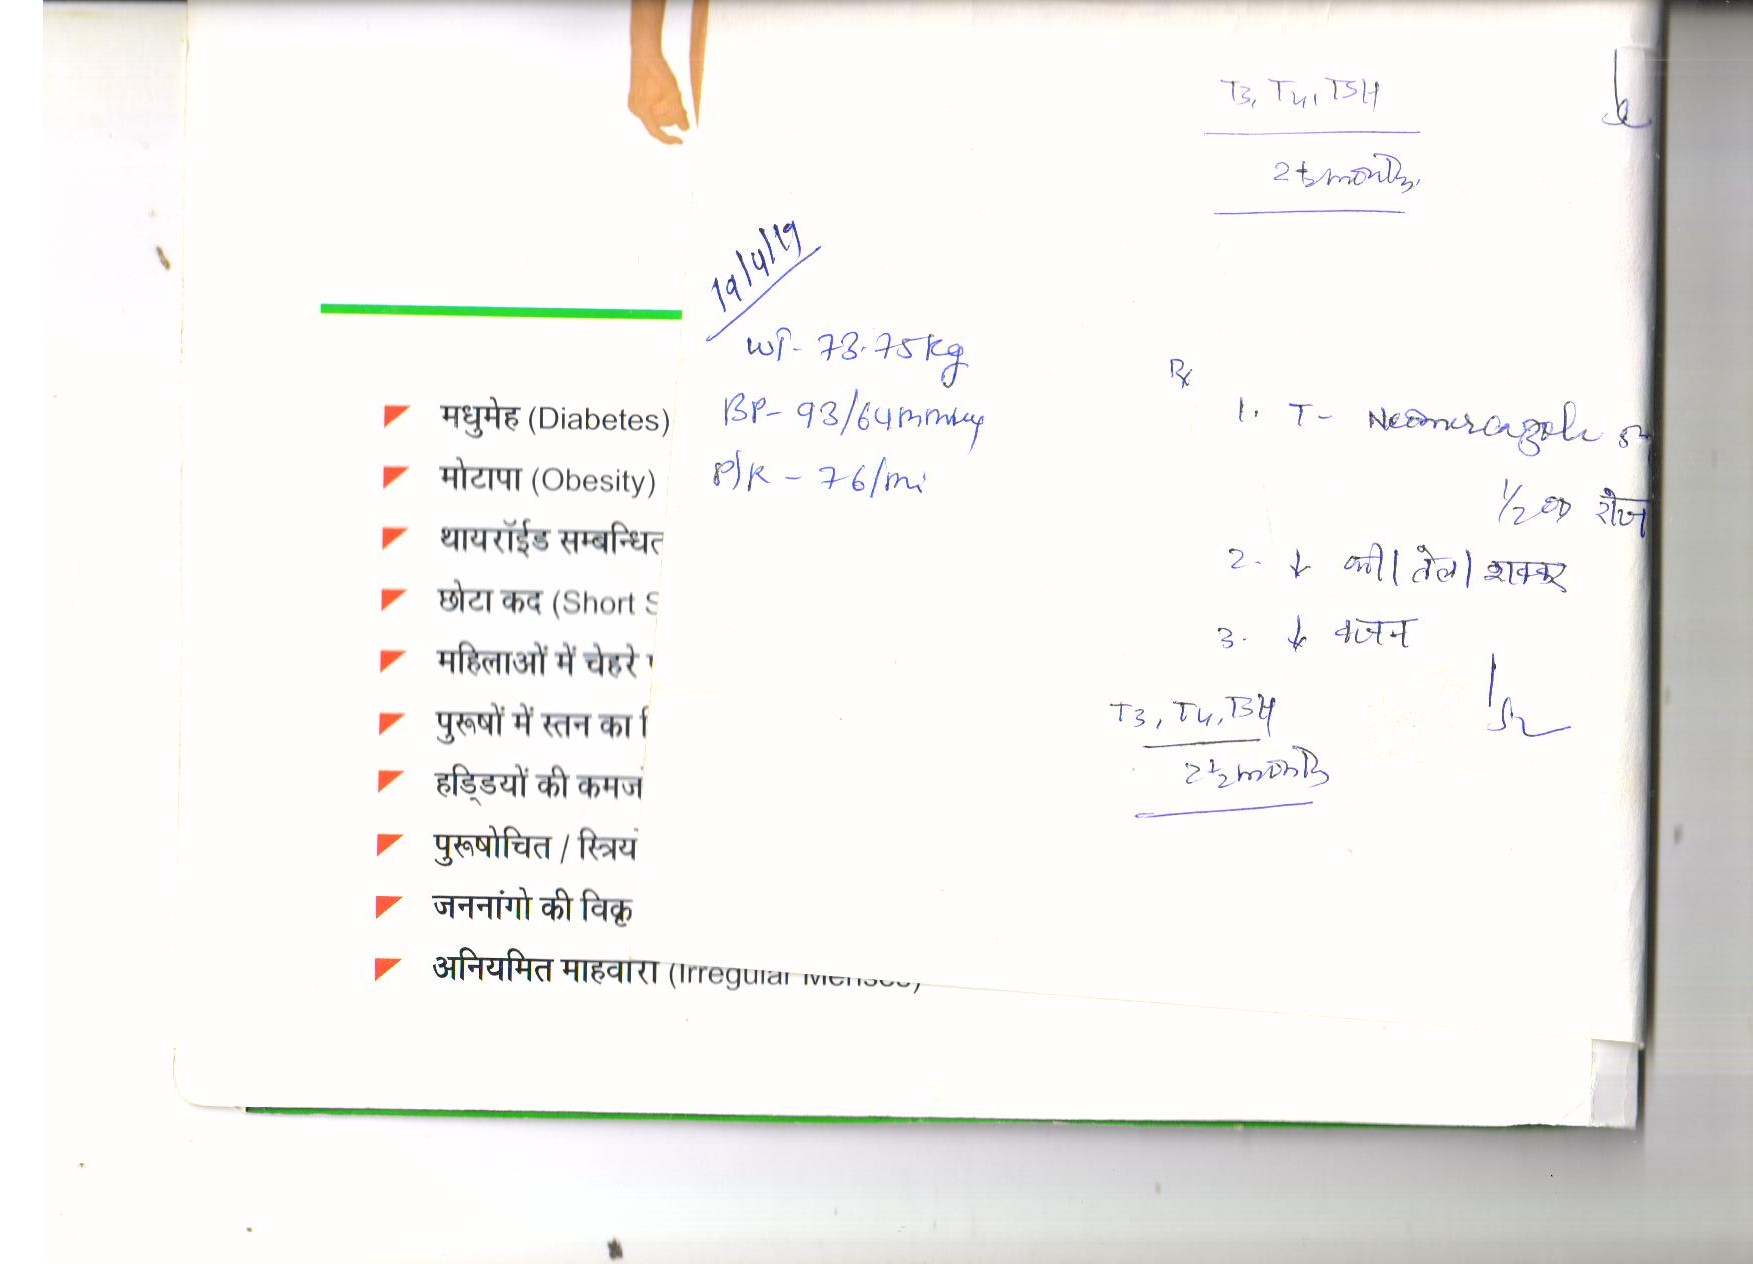 T3, T4, TSH
2 1/2 months
19/4/19
WT- 73.75kg
BP- 93/64mmHg
P/R - 76/mi
Rx
1. T- Neomercazole
1/2 रोज
2. ↓ घी/ तेल/ शक्कर
3. ↓ वजन
T3, T4, TSH
2 1/2 months
मधुमेह (Diabetes)
मोटापा (Obesity)
थायरॉईड सम्बन्धित
छोटा कद (Short S
महिलाओं में चेहरे
पुरूषों में स्तन का
हड्डियों की कमज
पुरूषोचित / स्त्रिय
जननांगो की विकृ
अनियमित माहवारी (Irregular Menses)